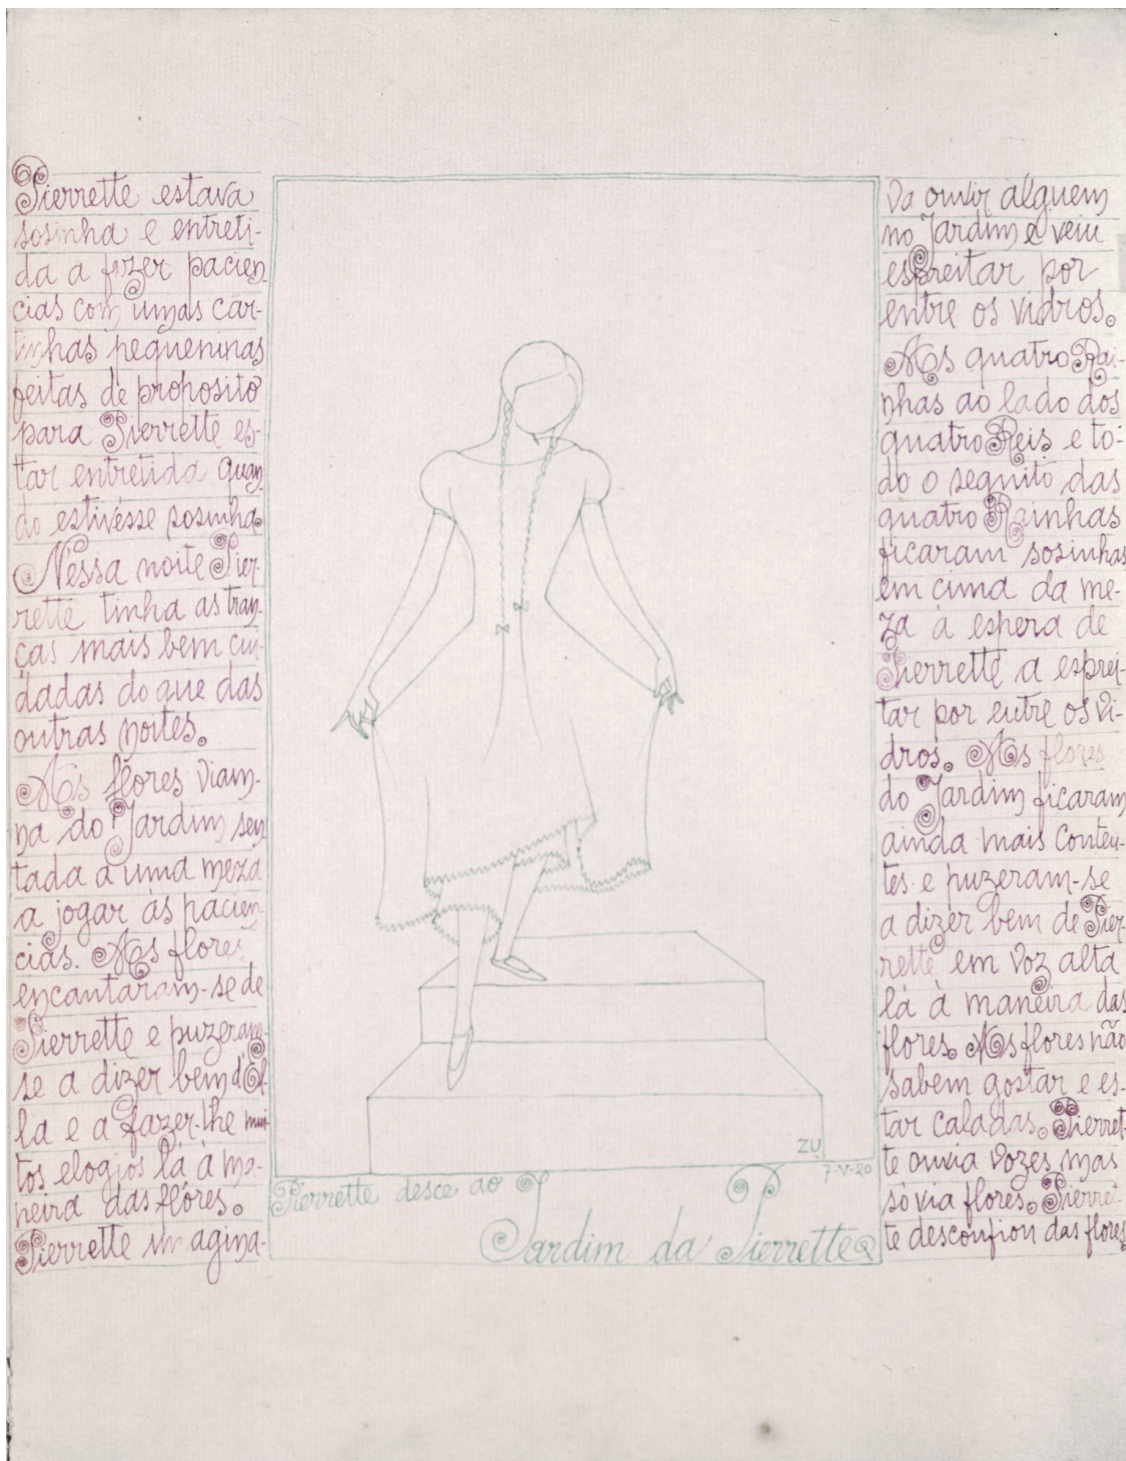 Pierrette estava
sosinha e entreti-
da a fazer pacien-
cias com umas car-
tinhas pequeninas
feitas de proposito
para Pierrette es-
tar entretida quan-
do estivésse sosinha.
Néssa noite Pier-
rette tinha as tran-
ças mais bem cui-
dadas do que das
outras noites.
As flores viam-
na do Jardim sen-
tada a uma meza
a jogar ás pacien-
cias. As flores
encantáram-se de
Pierrette e puzeram-
se a dizer bem d'El-
la e a fazer-lhe mui-
tos elogios lá á ma-
neira das flôres.
Pierrette imagina-
va ouvir alguem
no Jardim e veiu
espreitar por
entre os vidros.
As quatro Rai-
nhas ao lado dos
quatro Reis e to-
do o seguito das
quatro Rainhas
ficaram sosinhas
em cima da me-
za á espera de
Pierrette a esprei-
tar por entre os vi-
dros. As flores
do Jardim ficaram
ainda mais conten-
tes e puzeram-se
a dizer bem de Pier-
rette em voz alta
lá à maneira das
flores. As flores não
sabem gostar e es-
tar caladas. Pierret-
te ouvia vozes mas
só via flores. Pierret-
te desconfiou das flores.
ZU
7-V-20
Pierrette desce ao
Jardim da Pierrette